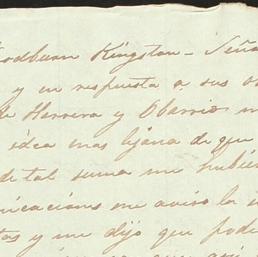 Woodburn Kingston - Seña
y en respuesta a sus
de Herrera y Obarrio
idea mas lijana de que
de tal suma me hubier
nicaciones me aviso la
tos y me dijo que pod